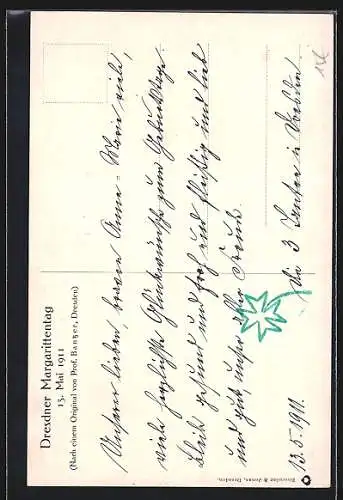 Dresdner Margarittentag
13. Mai 1911
(Nach einem Original von Prof. Bantzer, Dresden)
Unserer lieben, braven Anne-Marie viele,
viele herzlichste Glückwünsche zum Geburtstage.
Bleib gesund und froh und fleißig und lieb
und gut unser aller Freude.
Die 3 Tanten i. Dresden.
13.5.1911.